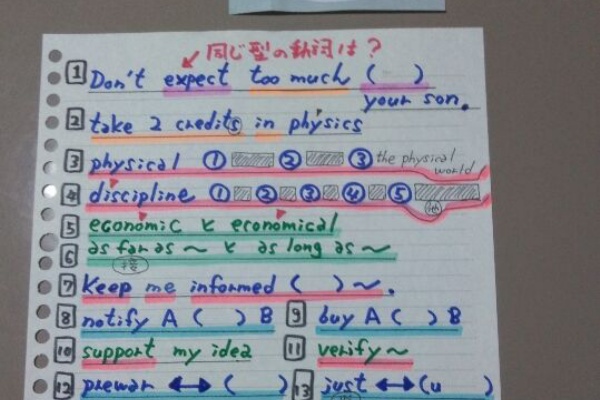 同じ型の動詞は？
1 Don't expect too much ( )
your son.
2 take 2 credits in physics
3 physical ① ② ③ the physical world
4 discipline ① ② ③ ④ ⑤
5 economic と economical
6 as far as 〜 と as long as 〜
7 Keep me informed ( ) 〜.
8 notify A ( ) B 9 buy A ( ) B
10 support my idea 11 verify 〜
12 prewar ↔ ( ) 13 just ↔ (u )